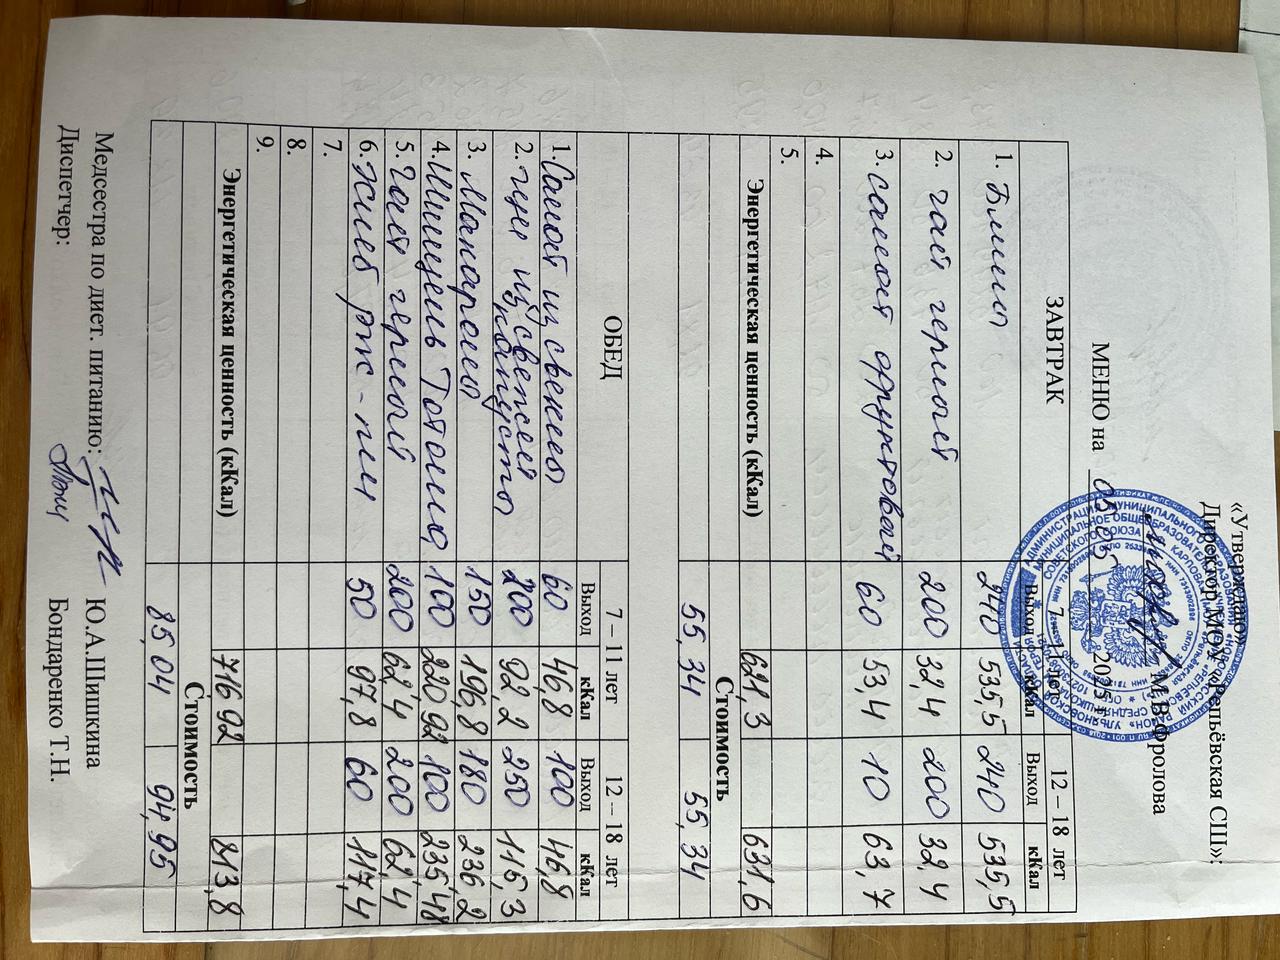 «Утверждаю»
Директор МОУ «Репьёвская СШ»:
М.В.Фролова
МЕНЮ на 05.05 2025г
ЗАВТРАК 7 – 11 лет 12 – 18 лет
Выход кКал Выход кКал
1. Блины 240 535,5 240 535,5
2. чай черный 200 32,4 200 32,4
3. салат фруктовый 60 53,4 10 63,7
4.
5.
Энергетическая ценность (кКал) 621,3 631,6
Стоимость
55,34 55,34
ОБЕД 7 – 11 лет 12 – 18 лет
Выход кКал Выход кКал
1. Салат из свеклы 60 46,8 100 46,8
2. Щи из свежей капусты 200 92,2 250 115,3
3. Макароны 150 196,8 180 236,2
4. Шницель Тотоша 100 220,92 100 235,48
5. Чай черный 200 62,4 200 62,4
6. Хлеб рж-пш 50 97,8 60 117,4
7.
8.
9.
Энергетическая ценность (кКал) 716 92 813,8
Стоимость
85,04 94,95
Медсестра по диет. питанию: Ю.А.Шишкина
Диспетчер: Бондаренко Т.Н.